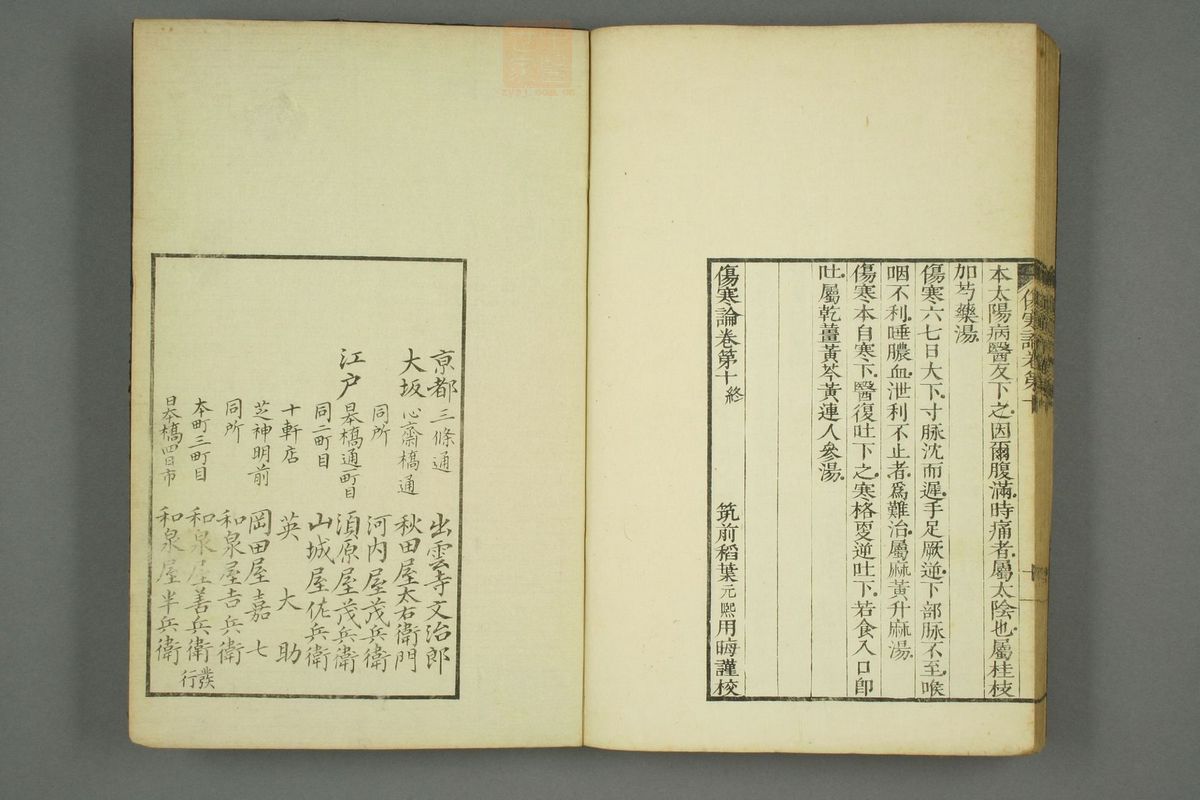 傷寒論卷第十
本太陽病醫反下之因爾腹滿時痛者屬太陰也屬桂枝
加芍藥湯
傷寒六七日大下寸脉沈而遲手足厥逆下部脉不至喉
咽不利唾膿血泄利不止者爲難治屬麻黃升麻湯
傷寒本自寒下醫復吐下之寒格更逆吐下若食入口即
吐屬乾薑黃芩黃連人參湯
傷寒論卷第十終 筑前稻葉元熙用晦謹校
京都三條通 出雲寺文治郎
大坂心齋橋通 秋田屋太右衛門
同所 河内屋茂兵衛
江戸日本橋通町目 須原屋茂兵衛
同二町目 山城屋佐兵衛
十軒店 英大助
芝神明前 岡田屋嘉七
同所 和泉屋吉兵衛
本町三町目 和泉屋善兵衛
日本橋四日市 和泉屋半兵衛
發行